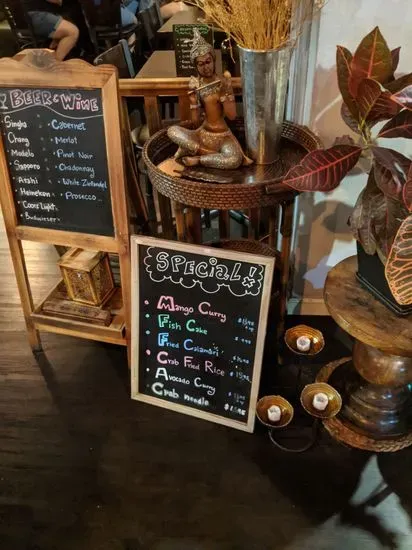 BEER & WINE
Singha
Chang
Modelo
Sapporo
Asahi
Heineken
Coors Light
Budweiser
Cabernet
Merlot
Pinot Noir
Chardonnay
White Zinfandel
Prosecco
SPECIAL!
Mango Curry
Fish Cake
Fried Calamari
Crab Fried Rice
Avocado Curry
Crab noodle